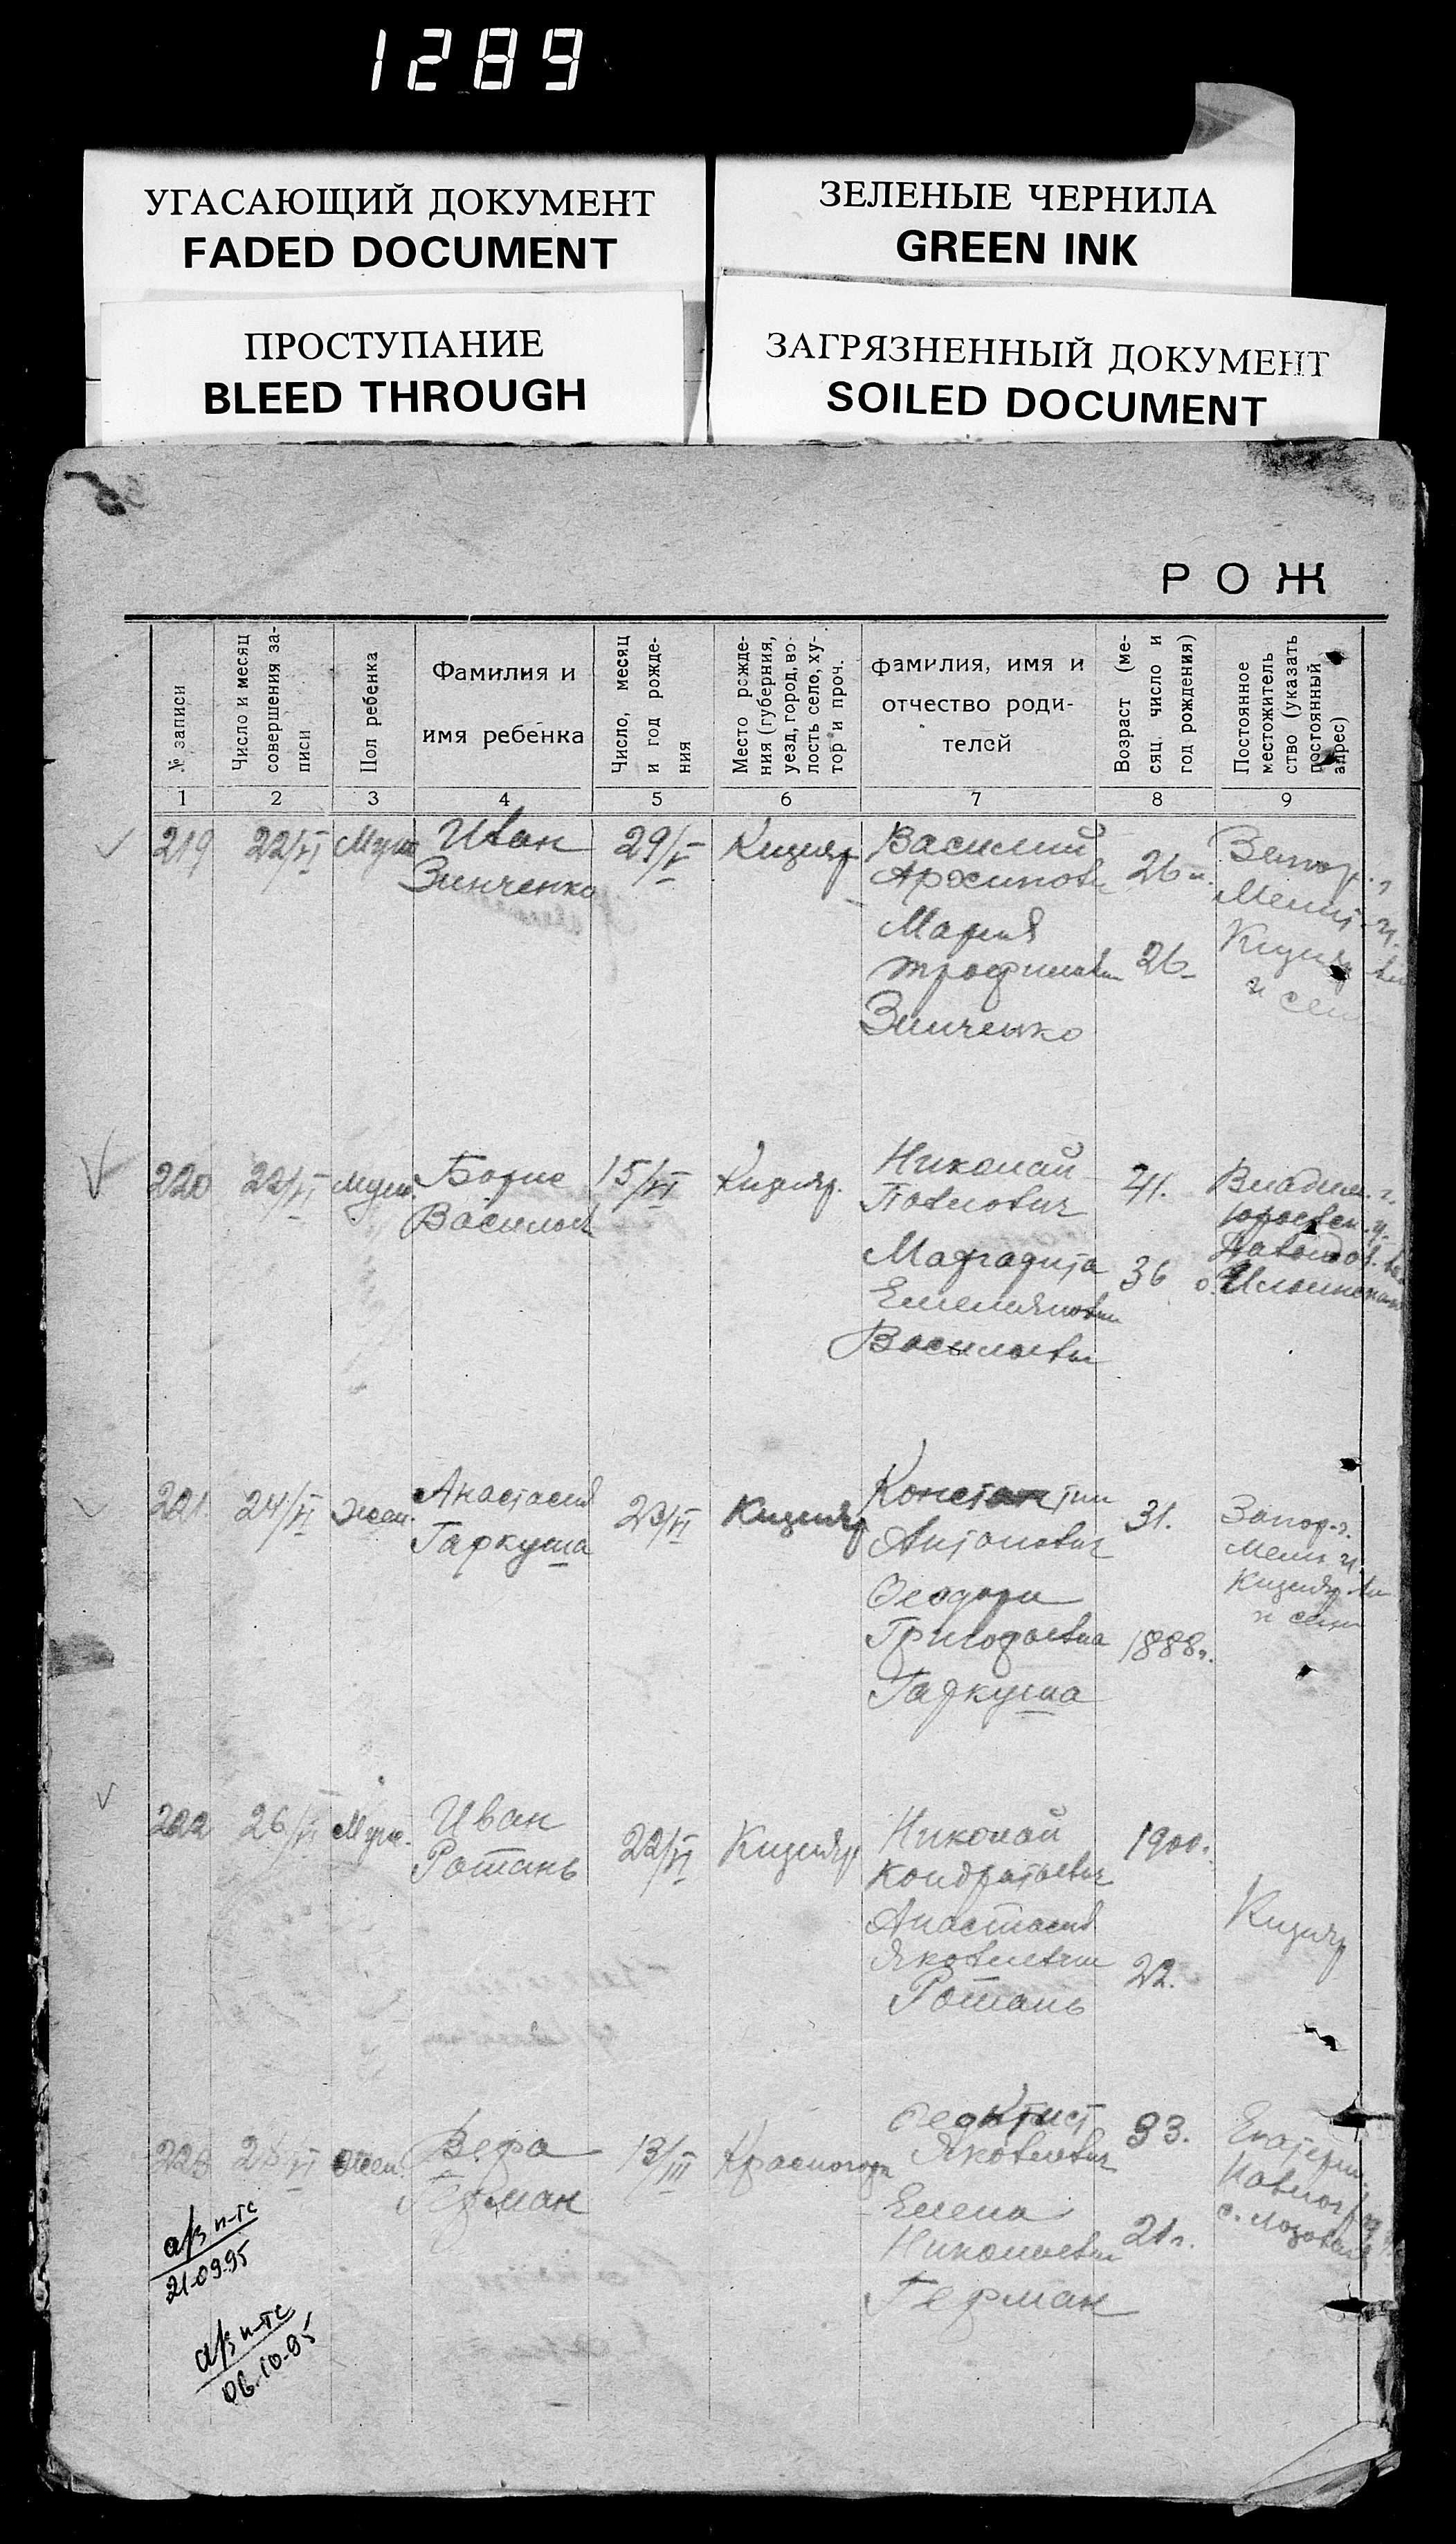 1289
УГАСАЮЩИЙ ДОКУМЕНТ
FADED DOCUMENT
ЗЕЛЕНЫЕ ЧЕРНИЛА
GREEN INK
ПРОСТУПАНИЕ
BLEED THROUGH
ЗАГРЯЗНЕННЫЙ ДОКУМЕНТ
SOILED DOCUMENT
РОЖ
№ записи
Число и месяц
совершения за-
писи
Пол ребенка
Фамилия и
имя ребенка
Число, месяц
и год рожде-
ния
Место рожде-
ния (губерния,
уезд, город, во-
лость село, ху-
тор и проч.
фамилия, имя и
отчество роди-
телей
Возраст (ме-
сяц число и
год рождения)
Постоянное
местожитель
ство (указать
постоянный
адрес)
1 2 3 4 5 6 7 8 9
219 22/VI Муж Иван
Зинченко
29/V Кизияр
Василий
Архипови
26
Мария
Трофимовн
26
Зинченко
Запор. г
Мелит. у.
Кизияр
и сели
220 22/VI муж. Борис
Васильев
15/VI Кизияр.
Николай
Павлович
41.
Маргарита
Емельяновн
36
Васильевы
Владим. г.
Юрьевск. у.
221 24/VI жен. Анастасия
Гаркуша
23/VI Кизияр
Константин
Антонович
31.
Феодора
Григорьевна
1888г.
Гаркуша
Запор. г.
Мелит у
Кизияр
и сели
222 26/VI Муж. Иван
Ротань
22/VI Кизияр
Николай
Кондратьевич
1900г.
Анастасия
Яковлевна
22.
Ротань
Кизияр
223 28/VI Жен. Вера
Герман
13/III Красногор
Феоктист
Яковлевич
33.
Елена
Николаевн
21г.
Герман
Екатерин
Павлогр
с. Лозовая
а/з п-тс
21-09-95
а/з п-тс
06-10-95